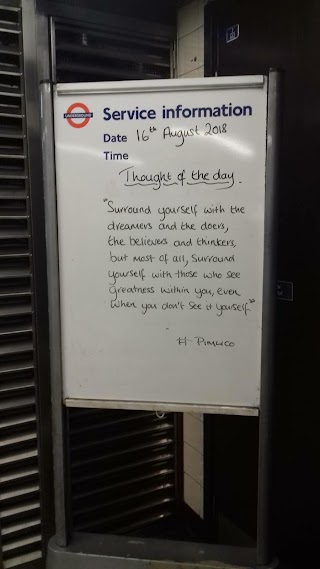 UNDERGROUND
Service information
Date 16th August 2018
Time
Thought of the day.
"Surround yourself with the
dreamers and the doers,
the believers and thinkers,
but most of all, surround
yourself with those who see
Greatness within you, even
when you don't see it yourself"
# Pimlico